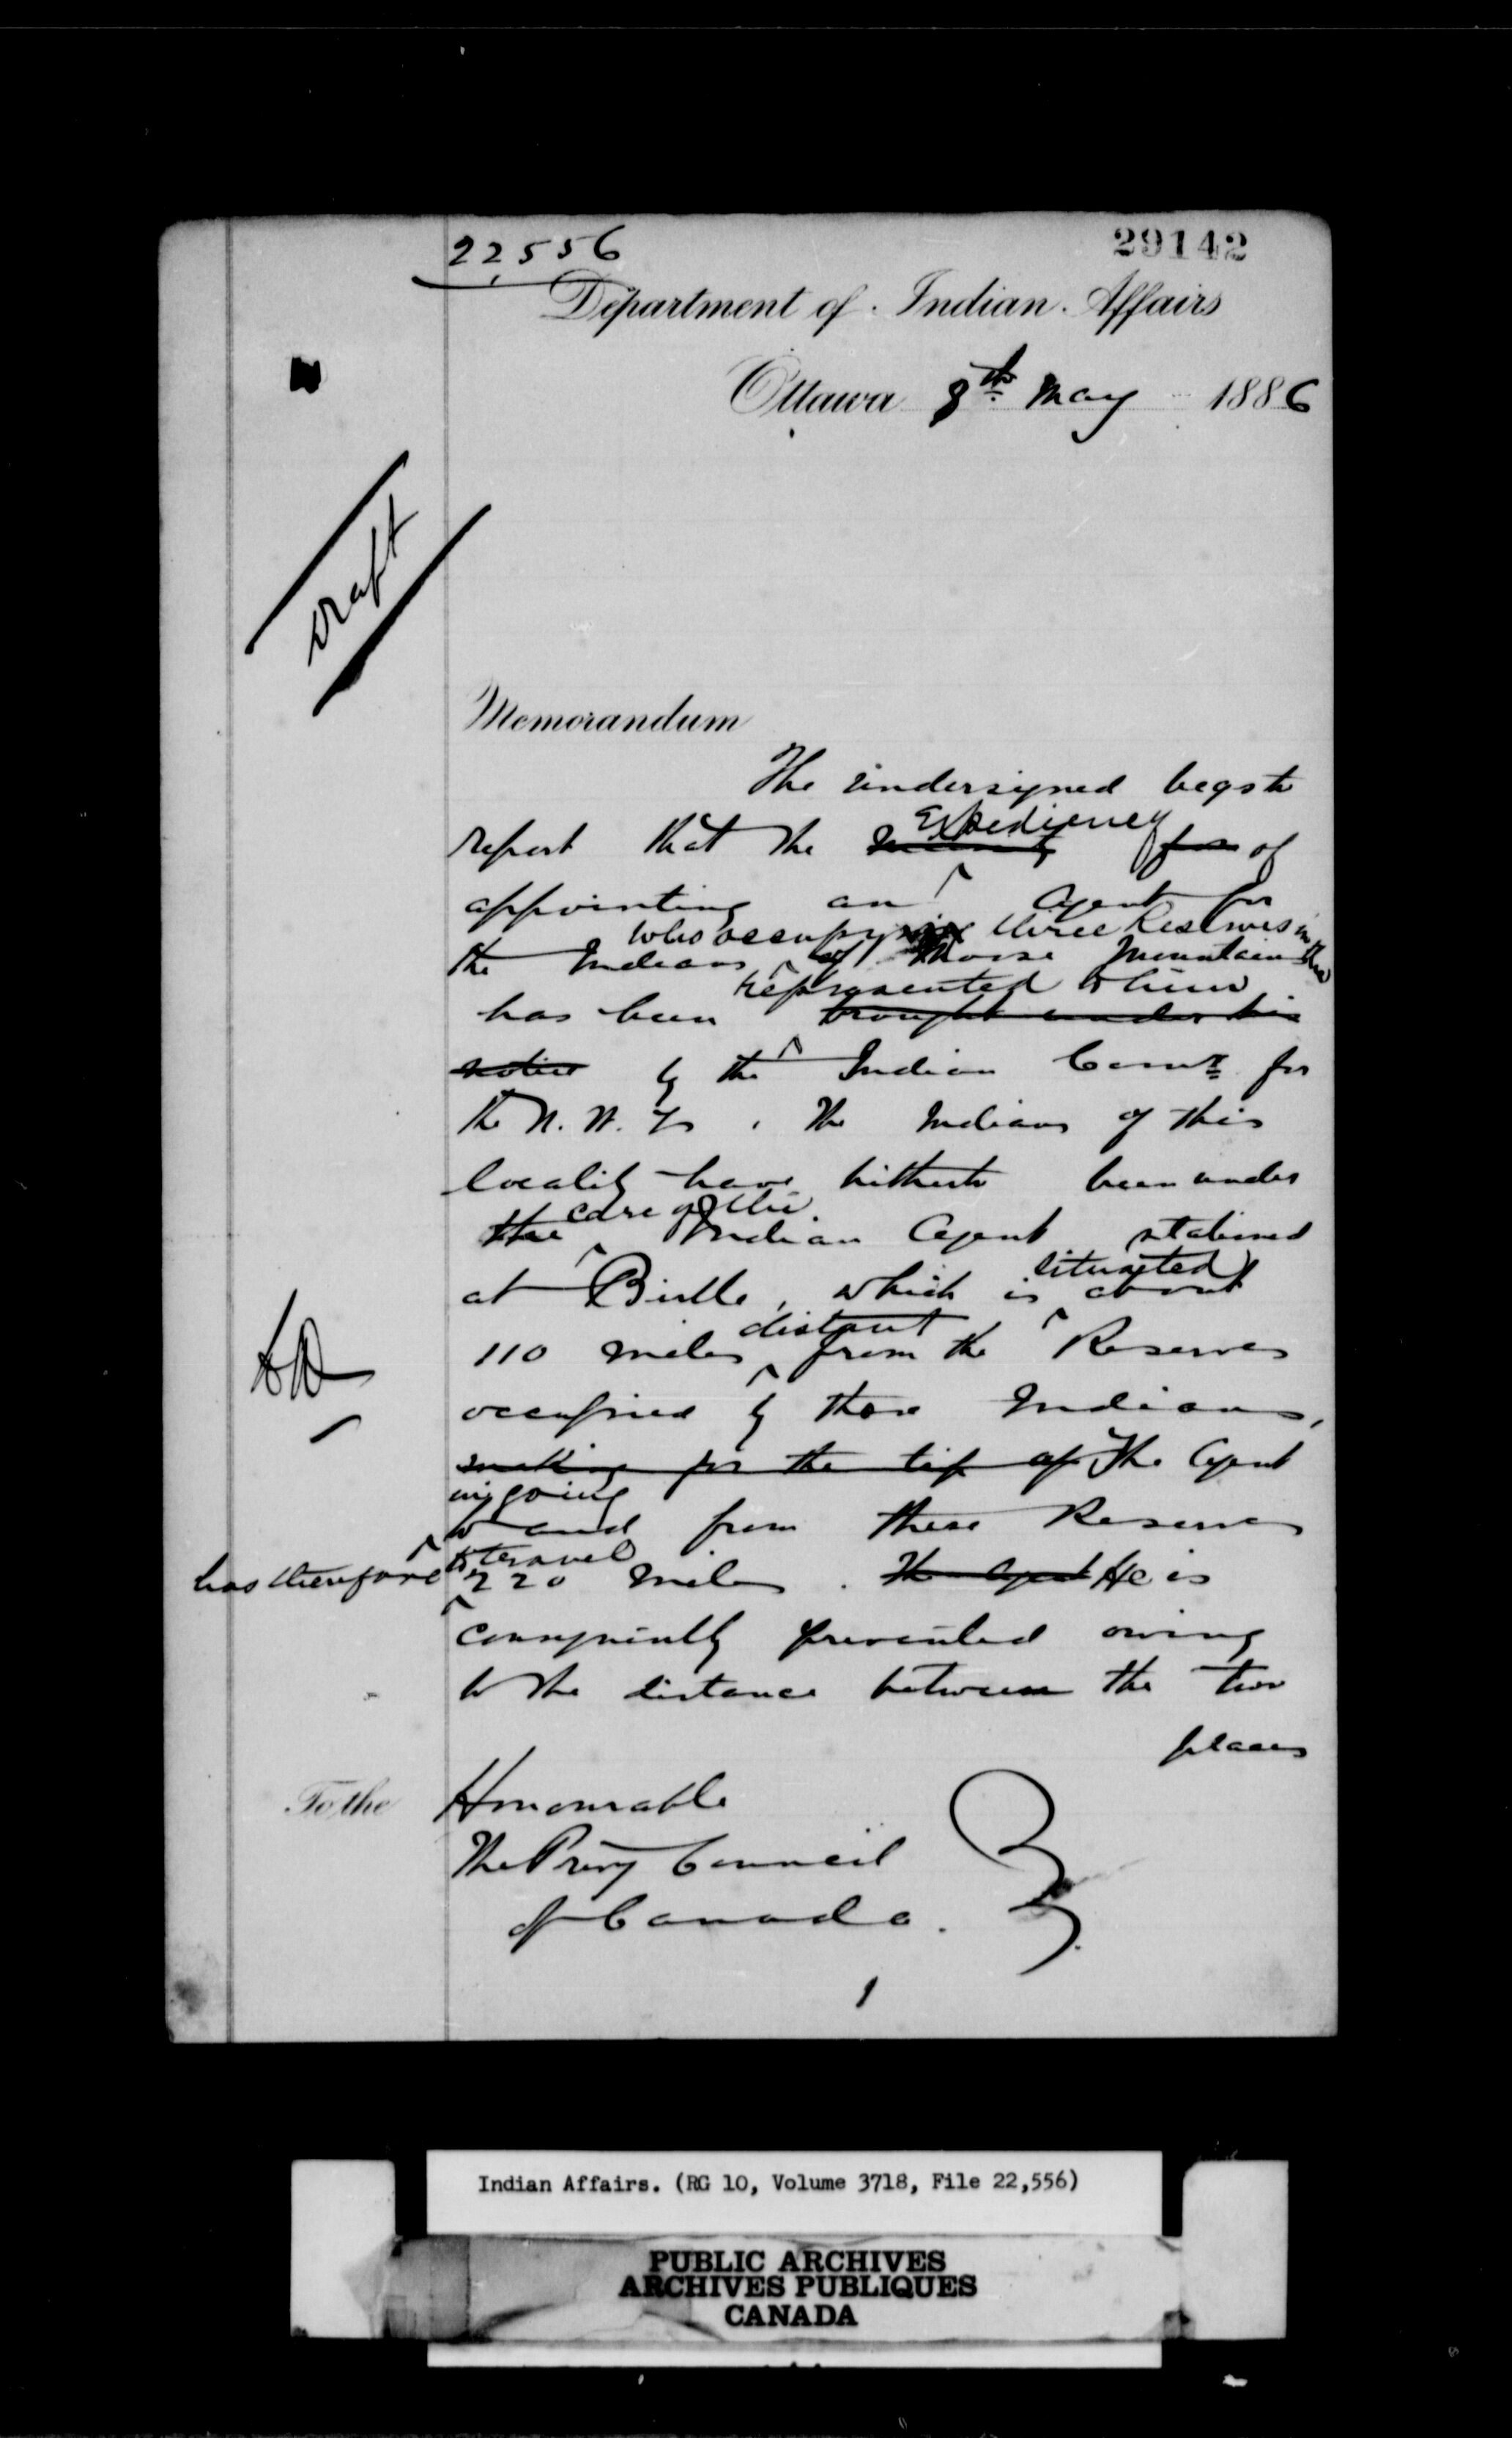 22,556
29142
Department of Indian Affairs
Ottawa 8th May 1886
Draft
Memorandum
The undersigned begs to
Expediency
report that the for of
appointing an Agent for
who occupy three Reserves in the
the Indians of Moose Mountain
represented to him
has been brought under his
notice by the Indian Comr. for
the N. W. Ts. The Indians of this
locality have hitherto been under
care of the
the Indian Agent stationed
situated
at Birtle, which is about
distant
110 miles from the Reserves
occupied by these Indians,
making for the trip of The Agent
in going
to and from these Reserves
has therefore to travel
220 miles. The Agent He is
consequently prevented owing
to the distance between the two
places
To the Honourable
The Privy Council
of Canada.
1
Indian Affairs. (RG 10, Volume 3718, File 22,556)
PUBLIC ARCHIVES
ARCHIVES PUBLIQUES
CANADA